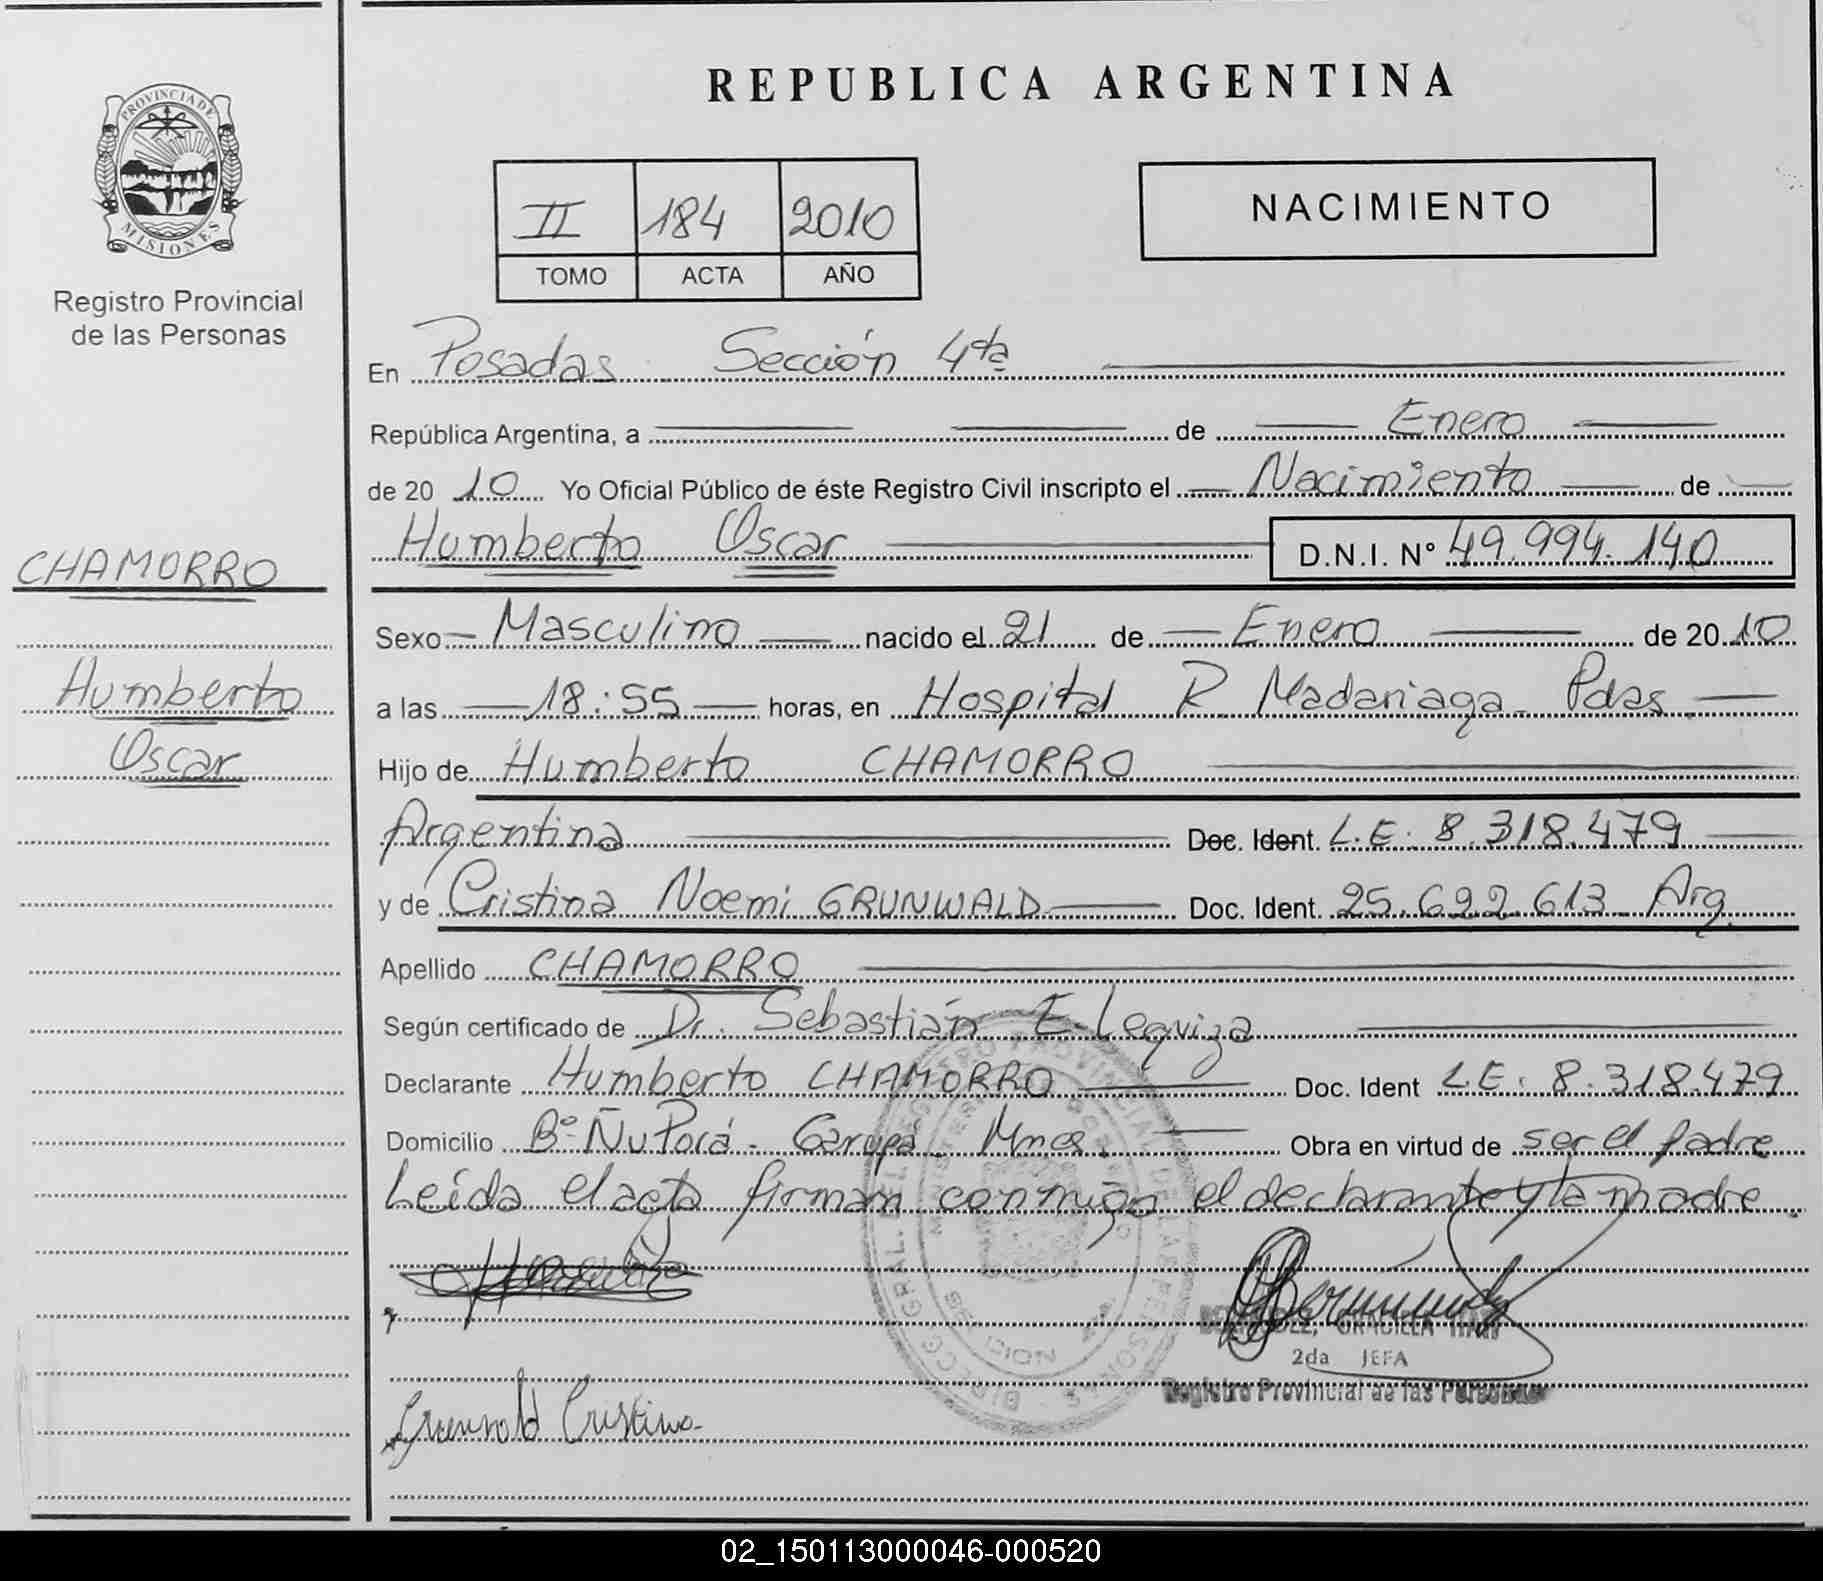 REPUBLICA ARGENTINA
PROVINCIA DE
MISIONES
Registro Provincial
de las Personas
II 184 2010
TOMO ACTA AÑO
NACIMIENTO
En Posadas Sección 4ta
República Argentina, a de Enero
de 20 10 Yo Oficial Público de éste Registro Civil inscripto el Nacimiento de
Humberto Oscar D.N.I. Nº 49.994.140
CHAMORRO
Humberto
Oscar
Sexo Masculino nacido el 21 de Enero de 20 10
a las 18:55 horas, en Hospital R. Madariaga - Pdas.
Hijo de Humberto CHAMORRO
Argentina Doc. Ident. L.E. 8.318.479
y de Cristina Noemi GRUNWALD Doc. Ident. 25.622.613 Arg.
Apellido CHAMORRO
Según certificado de Dr. Sebastián E. Leguiza
Declarante Humberto CHAMORRO Doc. Ident L.E. 8.318.479
Domicilio Bº Ñu Porá - Garupá Mnes. Obra en virtud de ser el padre
Leída el acta firman conmigo el declarante y la madre.
GRACIELA
2da JEFA
Registro Provincial de las Personas
Grunwald Cristina
02_150113000046-000520